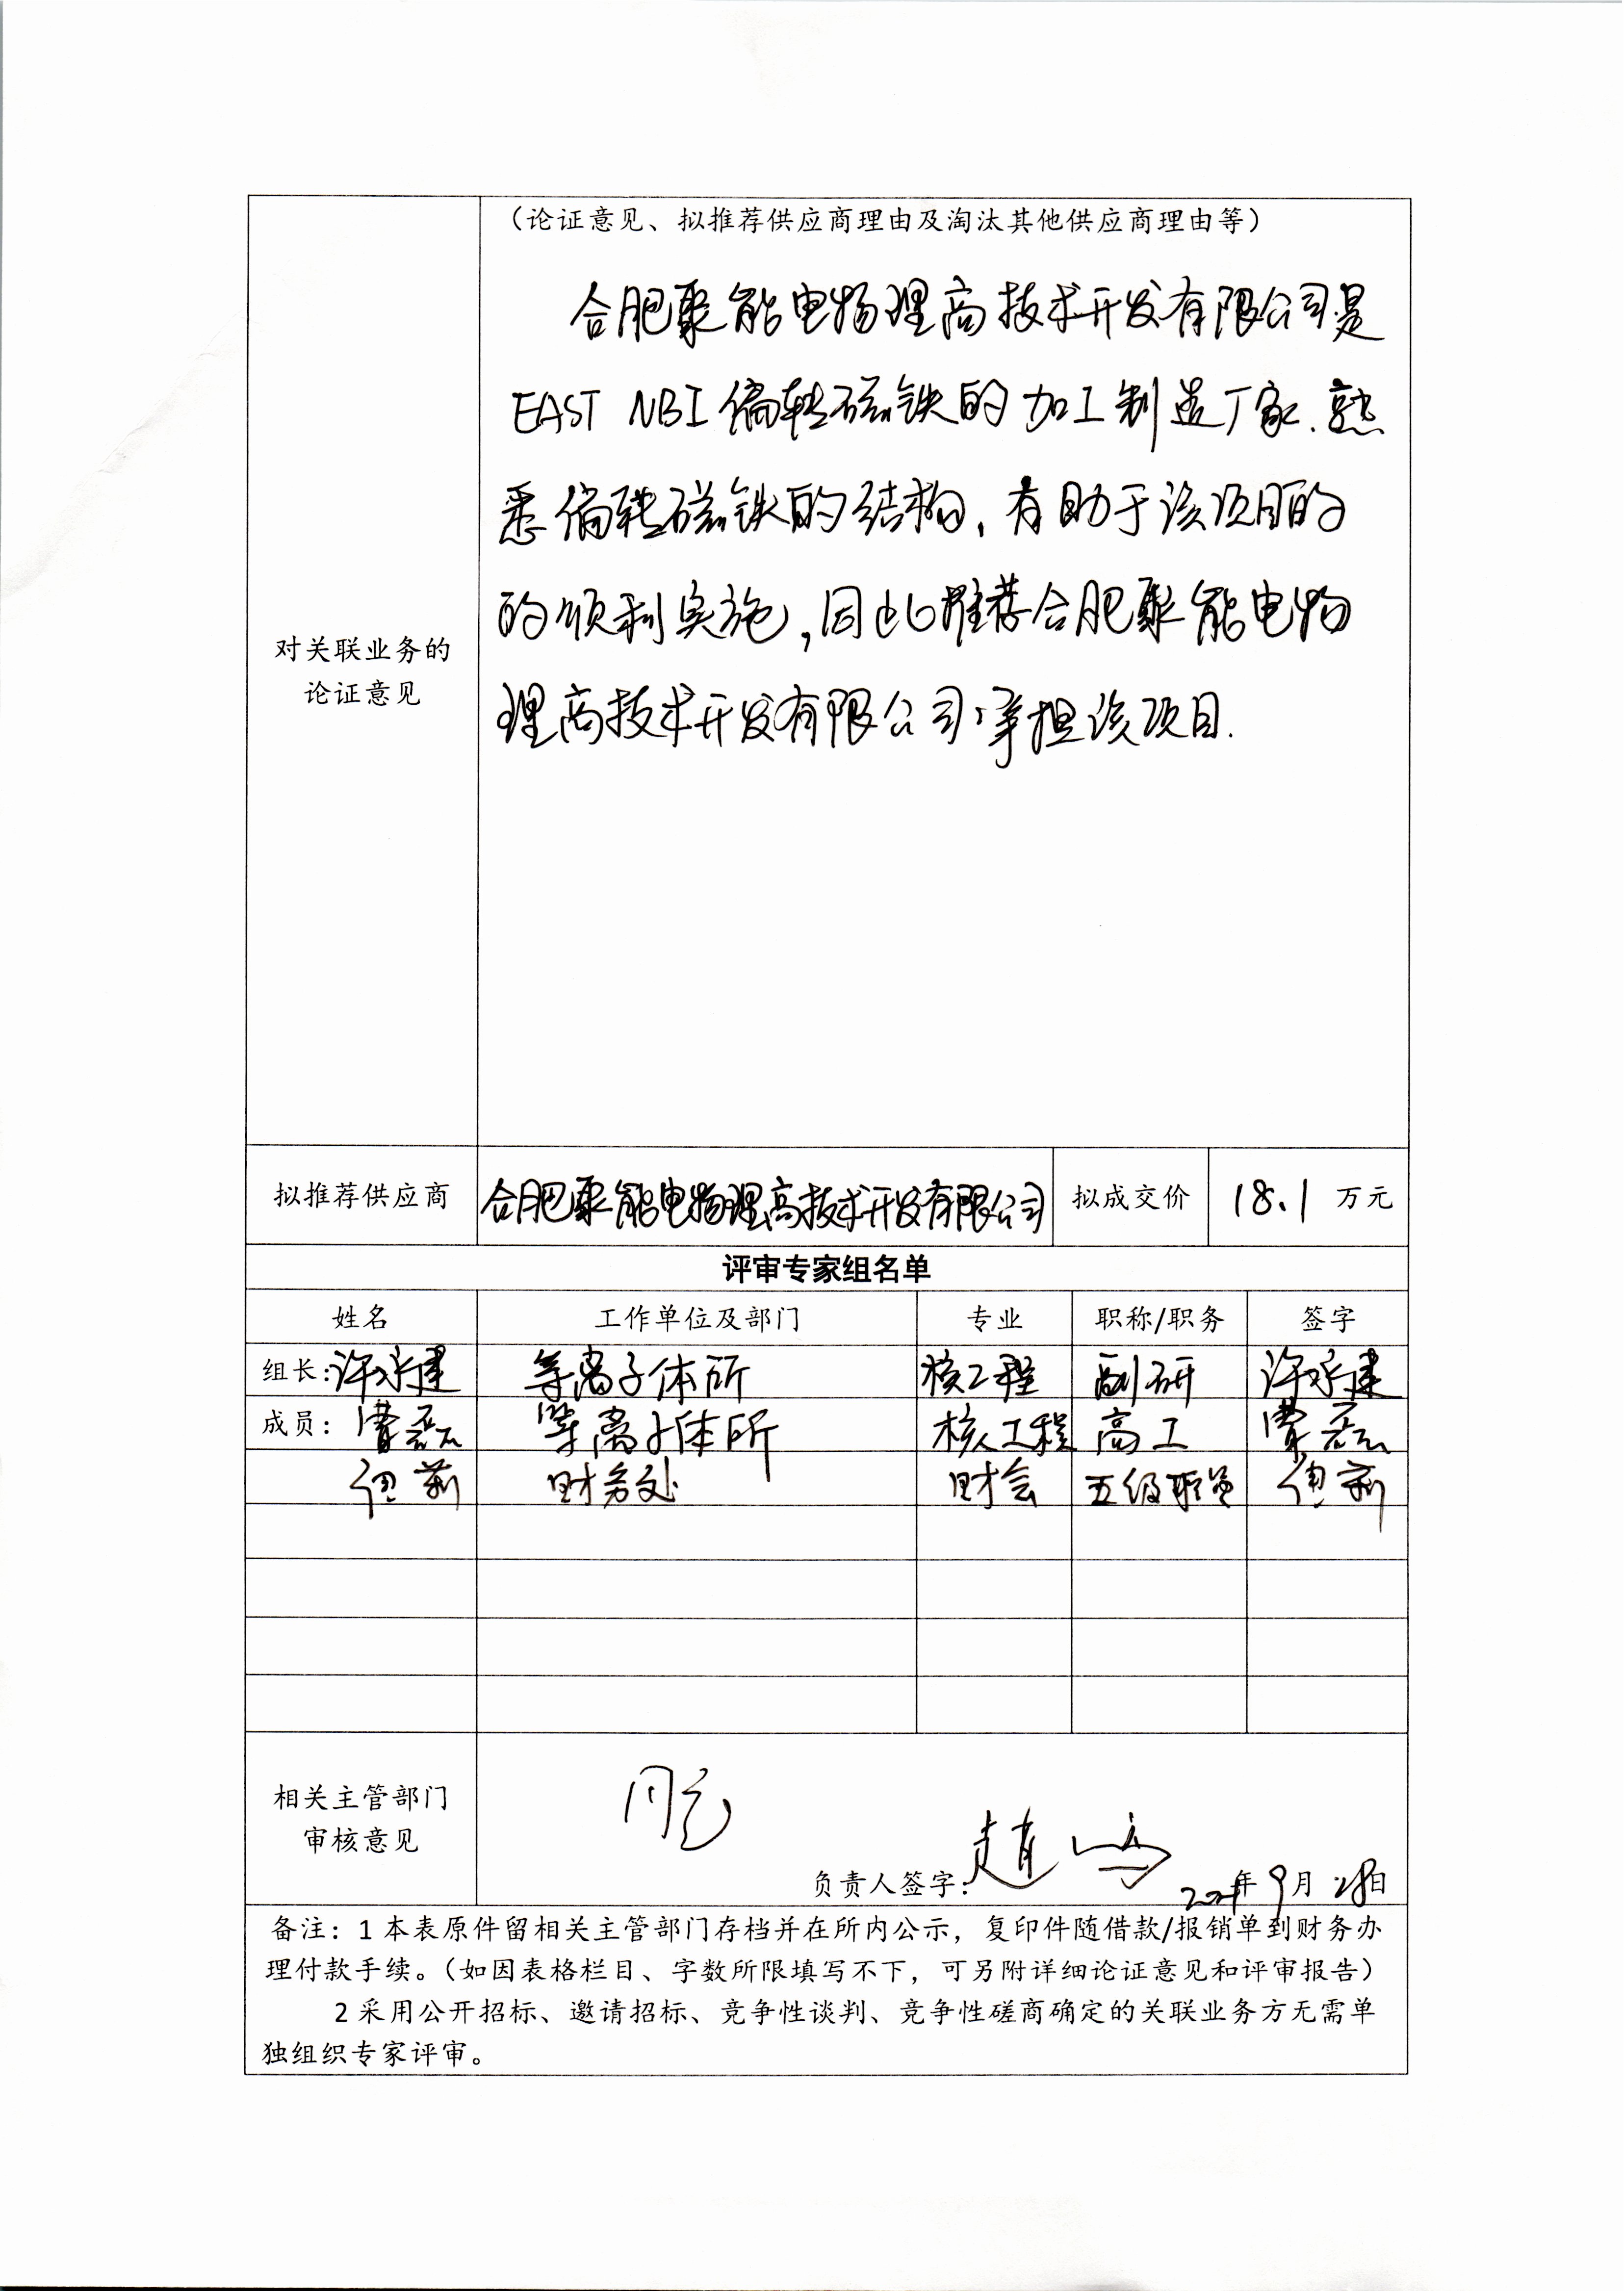 （论证意见、拟推荐供应商理由及淘汰其他供应商理由等）
合肥聚能电物理高技术开发有限公司是
EAST NBI偏转磁铁的加工制造厂家.熟
悉偏转磁铁的结构,有助于该项目的
的顺利实施,因此推荐合肥聚能电物
理高技术开发有限公司承担该项目.
对关联业务的
论证意见
拟推荐供应商 合肥聚能电物理高技术开发有限公司 拟成交价 18.1 万元
评审专家组名单
姓名 工作单位及部门 专业 职称/职务 签字
组长:许永建 等离子体所 核工程 副研 许永建
成员: 等离子体所 核工程 高工
财务处 财会 五级职员
相关主管部门
审核意见
同意
负责人签字: 赵 年9月28日
备注：1 本表原件留相关主管部门存档并在所内公示，复印件随借款/报销单到财务办
理付款手续。（如因表格栏目、字数所限填写不下，可另附详细论证意见和评审报告）
2 采用公开招标、邀请招标、竞争性谈判、竞争性磋商确定的关联业务方无需单
独组织专家评审。